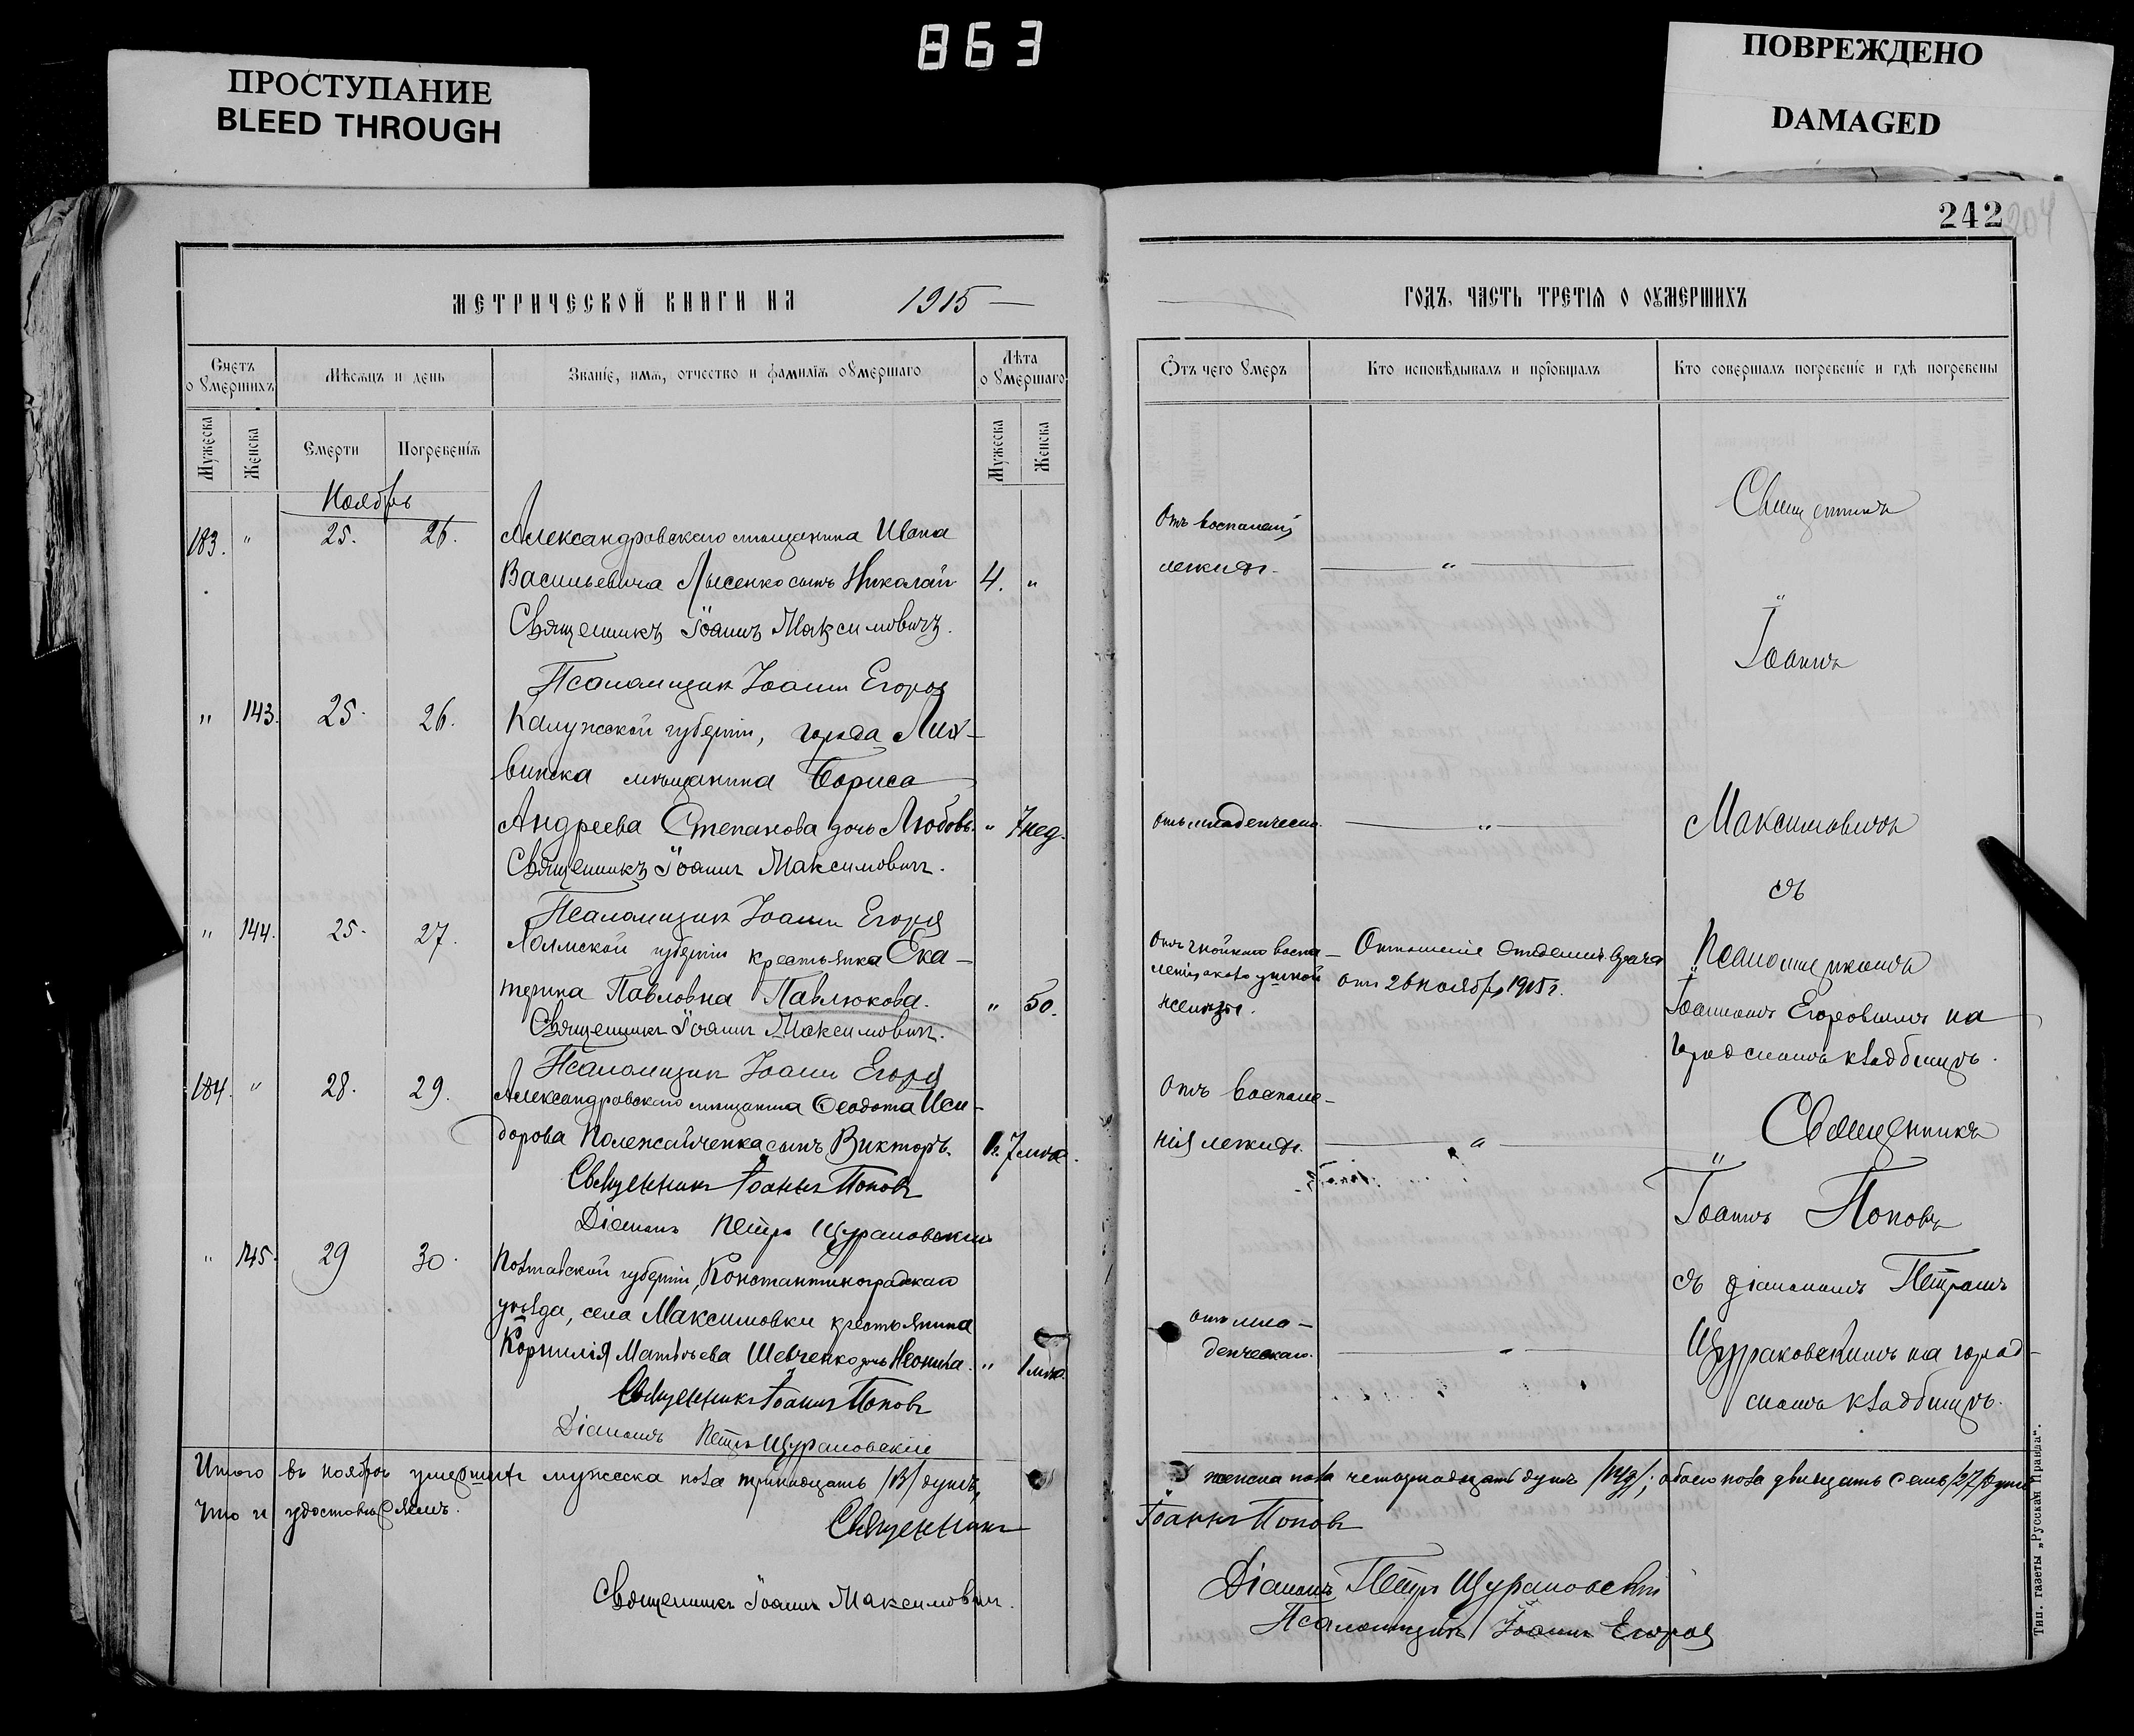 863
ПРОСТУПАНИЕ
BLEED THROUGH
ПОВРЕЖДЕНО
DAMAGED
242
204
МЕТРИЧЕСКОЙ КНИГИ НА 1915
ГОДЪ, ЧАСТЬ ТРЕТІЯ О ОУМЕРШИХЪ
Счетъ о Умершихъ
Мѣсяцъ и день
Званіе, имя, отчество и фамилія оумершаго
Лѣта о Умершаго
Отъ чего Умеръ
Кто исповѣдывалъ и пріобщалъ
Кто совершалъ погребеніе и гдѣ погребены
Мужеска
Женска
Смерти
Погребенія
Мужеска
Женска
Ноябрь
183. " 25. 26. Александровскаго мѣщанина Ивана
Васильевича Лысенко сынъ Николай 4. "
Священникъ Іоаннъ Максимовичъ.
Псаломщик Іоанн Егоров
" 143. 25. 26. Калужской губерніи, города Лих-
винска мѣщанина Бориса
Андреева Степанова дочь Любовь. " 7 нед.
Священникъ Іоаннъ Максимович.
Псаломщик Іоанн Егоров
" 144. 25. 27. губерніи крестьянка Ека-
терина Павловна Павлюкова. " 50.
Священникъ Іоаннъ Максимович.
Псаломщик Іоанн Егоров
184. " 28. 29. Александровскаго мѣщанина Ѳеодота Иси-
дорова сынъ Викторъ. 7 мѣс.
Священникъ Іоаннъ Поповъ
Діаконъ Петръ Щураковскій
" 145. 29 30. Полтавской губерніи, Константиноградскаго
уѣзда, села Максимовки крестьянина
Корнилія Матвѣева Шевченко дочь Леонила. " 1 мѣс.
Священникъ Іоаннъ Поповъ
Діаконъ Петръ Щураковскій
Итого въ ноябрѣ умершихъ мужеска пола тринадцать /13/ душъ,
что и удостовѣряемъ.
Священникъ
Священникъ Іоаннъ Максимович.
Отъ воспаленія
легкихъ. "
отъ младенческ. "
Отъ гнойнаго воспа-
леніе околоушной
железы.
Отношеніе врача
отъ 26 ноября 1915 г.
Отъ воспале-
нія легкихъ. "
отъ мла-
денческаго. "
Священникъ
Іоаннъ
Максимовичъ
съ
Псаломщикомъ
Іоанномъ Егоровымъ на
городскомъ кладбищѣ.
Священникъ
Іоаннъ Поповъ
съ діакономъ Петромъ
Щураковскимъ на город-
скомъ кладбищѣ.
женска пола четырнадцать душъ /14/; обоего пола двадцать семь /27/ душъ
Іоаннъ Поповъ
Діаконъ Петръ Щураковскій
Псаломщикъ Іоаннъ Егоров
Тип. газеты „Русская Правда“.